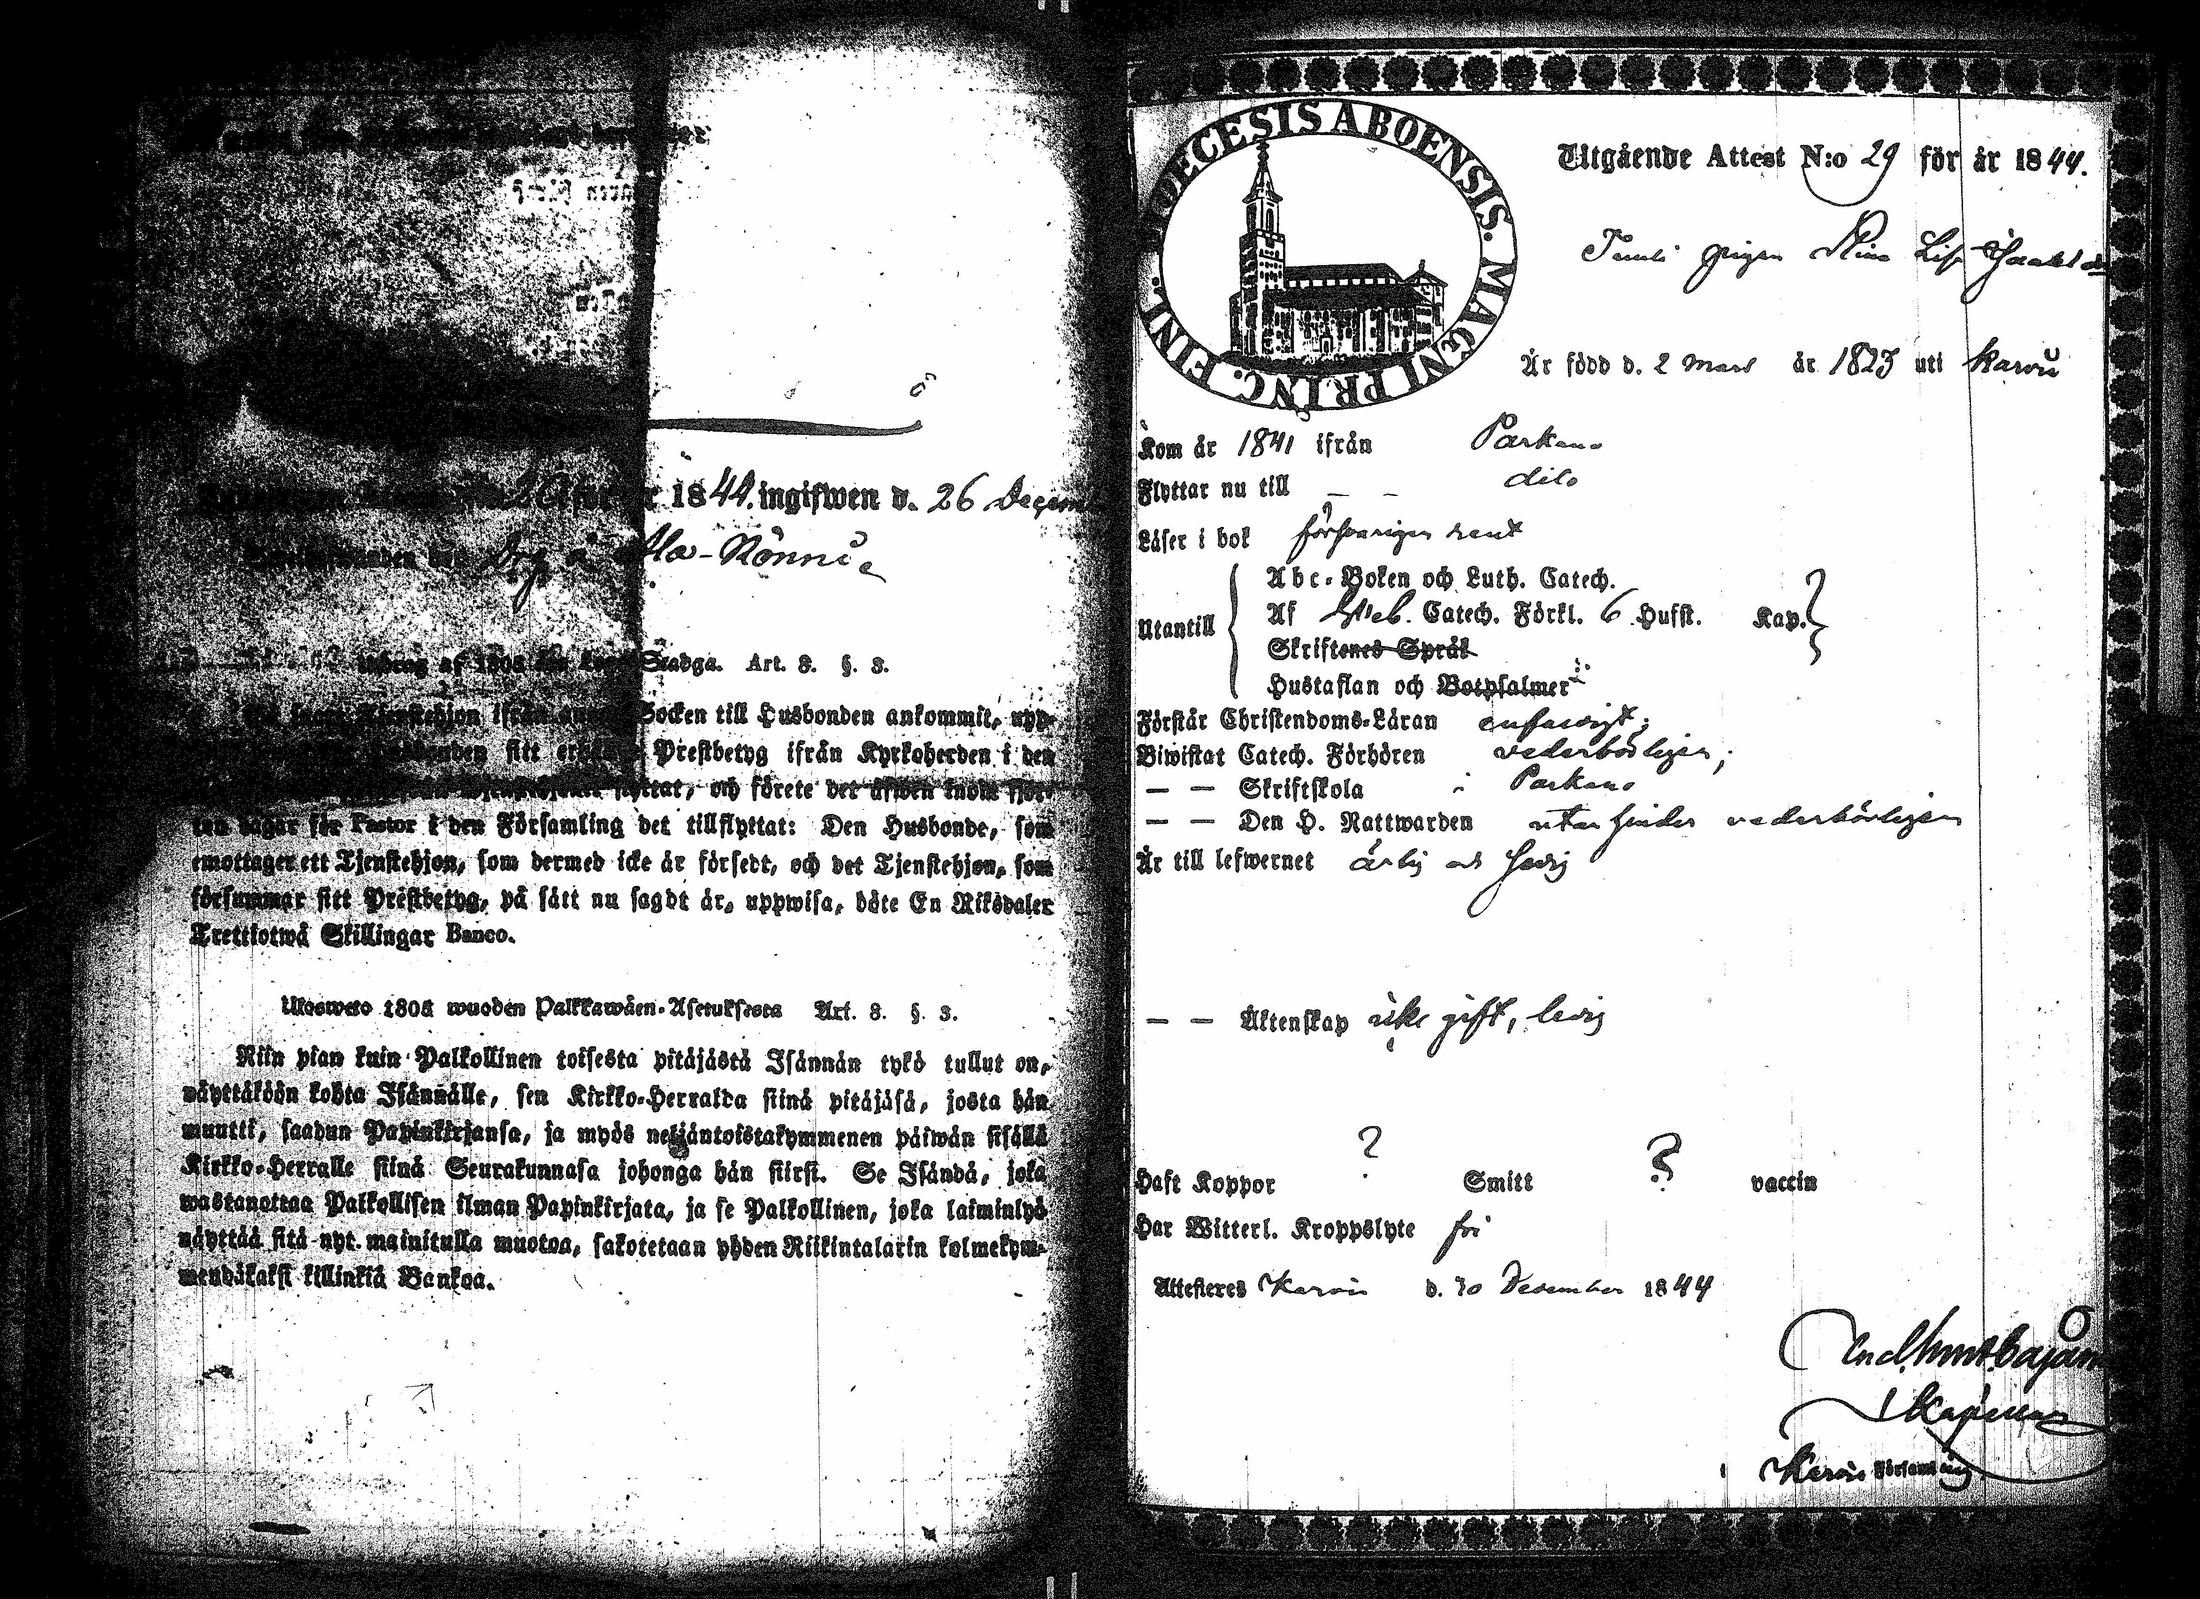 1844. ingifwen d. 26 Decemb
Ala-Rönni
Utdrag af 1805 års Lego-Stadga. Art. 8. §. 3.
Tjenstehjon ifrån annan Socken till Husbonden ankommit, upp-
sitt Prestbetyg ifrån Kyrkoherden i den
flyttat, och förete det äfwen inom fjor-
ton dagar för Pastor i den Församling det tillflyttat: Den Husbonde, som
emottager ett Tjenstehjon, som dermed icke är försedt, och det Tjenstehjon, som
försummar sitt Prestbetyg, på sätt nu sagdt är, uppwisa, böte En Riksdaler
Trettiotwå Skillingar Banco.
Ulosweto 1805 wuoden Palkkawäen-Asetuksesta Art. 8. §. 3.
Niin pian kuin Palkollinen toisesta pitäjästä Isännän tykö tullut on,
näyttäköön kohta Isännälle, sen Kirkko-Herralda siinä pitäjäsä, josta hän
muutti, saadun Papinkirjansa, ja myös neljäntoistakymmenen päiwän sisällä
Kirkko-Herralle siinä Seurakunnasa johonga hän siirsi. Se Isändä, joka
wastanottaa Palkollisen ilman Papinkirjata, ja se Palkollinen, joka laiminlyö
näyttää sitä nyt mainitulla muotoa, sakotetaan yhden Riikintalarin kolmekym-
mendäkaksi killinkiä Bankoa.
DIOECESIS ABOENSIS. MAGNI PRINC. FINL.
Utgående Attest N:o 29 för år 1844.
pigan Lisa
Är född d. 2 Mars år 1823 uti Karvia
Kom år 1841 ifrån Parkano
Flyttar nu till — — dito
Läser i bok försvarligen rent
Utantill
Abc-Boken och Luth. Catech.
Af Catech. Förkl. 6 Hufst. Kap.
Skriftenes Språk
Hustaflan och Botpsalmer
Förstår Christendoms-Läran enfaldigt;
Biwistat Catech. Förhören vederbörligen;
— — Skriftskola i Parkano
— — Den H. Nattwarden utan hinder vederbörligen
Är till lefwernet ärlig och
— — Äktenskap icke gift, ledig
Haft Koppor ? Smitt ? vaccin
Har Witterl. Kroppslyte fri
Attesteres Karvia d. 30 December 1844
Kapellan
Karvia Församling